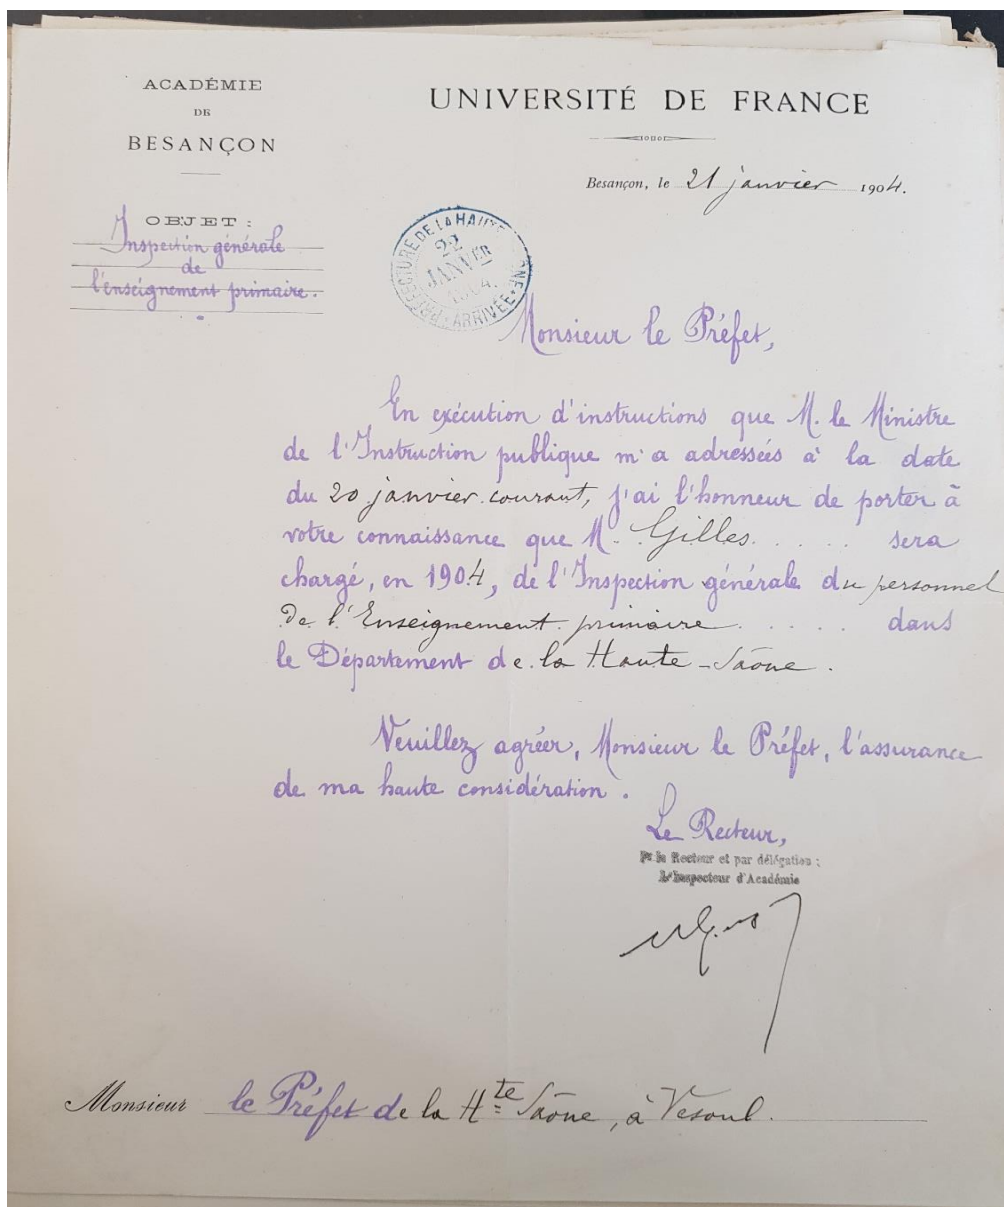 ACADÉMIE
DE
BESANÇON
UNIVERSITÉ DE FRANCE
Besançon, le 21 janvier 1904.
OBJET :
Inspection générale
de
l'enseignement primaire.
PRÉFECTURE DE LA HAUTE SAÔNE
22
JANVER
1904.
ARRIVÉE
Monsieur le Préfet,
En exécution d'instructions que M. le Ministre
de l'Instruction publique m'a adressées à la date
du 20 janvier courant, j'ai l'honneur de porter à
votre connaissance que M. Gilles . . . . . sera
chargé, en 1904, de l'Inspection générale du personnel
de l'Enseignement primaire . . . . . dans
le Département de la Haute-Saône.
Veuillez agréer, Monsieur le Préfet, l'assurance
de ma haute considération.
Le Recteur,
Pr le Recteur et par délégation :
L'Inspecteur d'Académie
Monsieur le Préfet de la Hte Saône, à Vesoul.